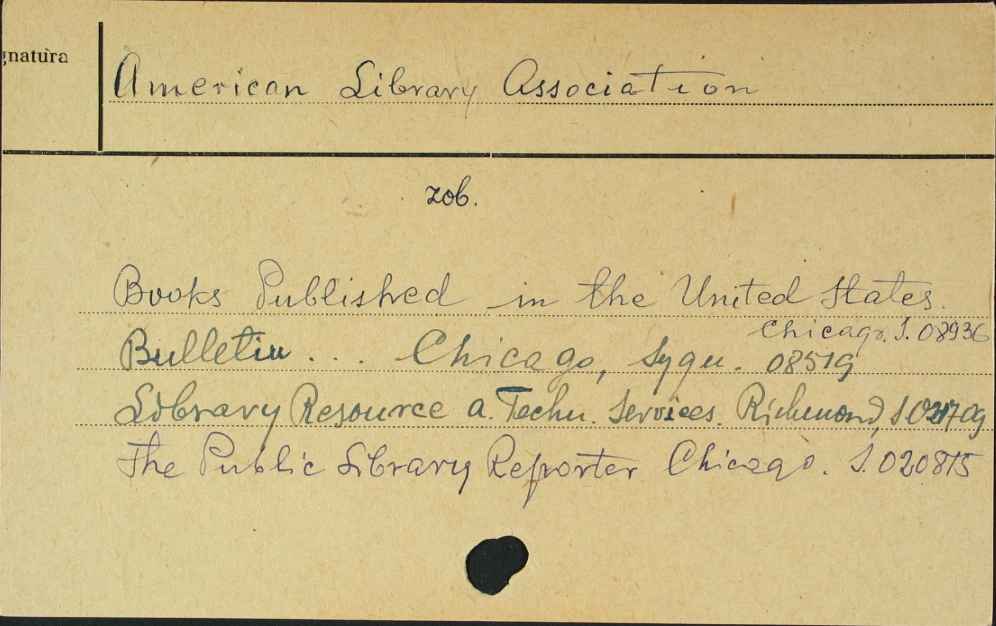 gnatura
American Library Association
zob.
Books Published in the United States.
Chicago. S. 08936
Bulletin . . . Chicago, Sygn. 08519
Library Resource a. Techn. Services. Richmond, S
The Public Library Reporter Chicago. S. 020815